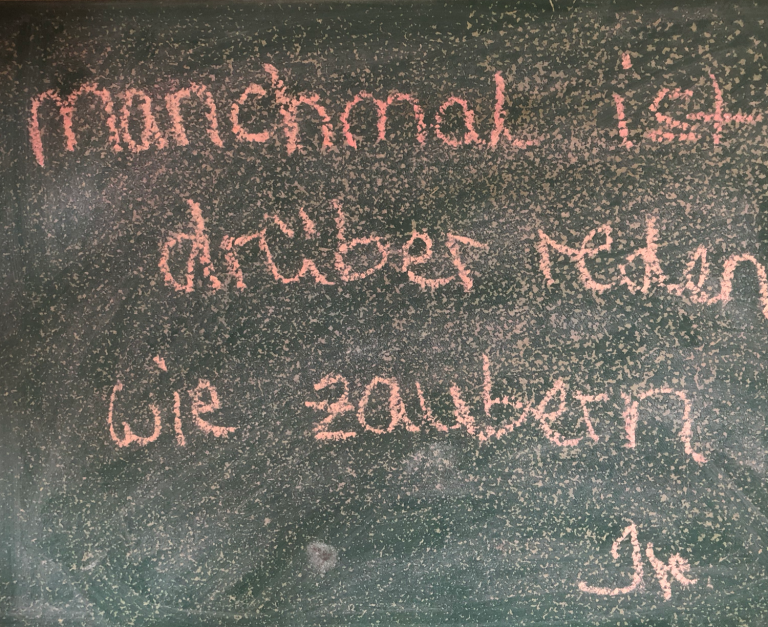 manchmal ist
drüber reden
wie zaubern